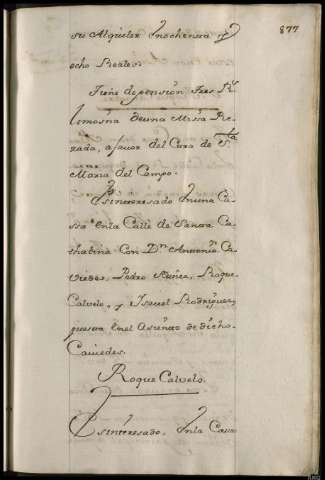 877
su Alquiler Inochenta y
ocho Reales.
Tiene de pension tres Rs.
limosna de una Misa Re-
zada, a favor del Cura de Sta.
Maria del Campo.
Es interesado Inuna Ca-
ssa Enla Calle de Santa Ca-
thalina Con Dn. Antonio Ca-
viedes, Pedro Nuñez, Roque
Calvelo, y Isavel Rodriguez,
puesta Enel Asiento de dicho
Caviedes.
Roque Calvelo.
Es interesado, Inla Cassa